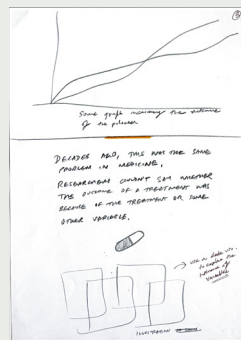 Some graph measuring the outcome
of the policies
DECADES AGO, THIS WAS THE SAME
PROBLEM IN MEDICINE.
RESEARCHERS COULDN'T SAY WHETHER
THE OUTCOME OF A TREATMENT WAS
BECAUSE OF THE TREATMENT OR SOME
OTHER VARIABLE.
→ use a data viz.
to explain the
of
variable
ILLUSTRATION